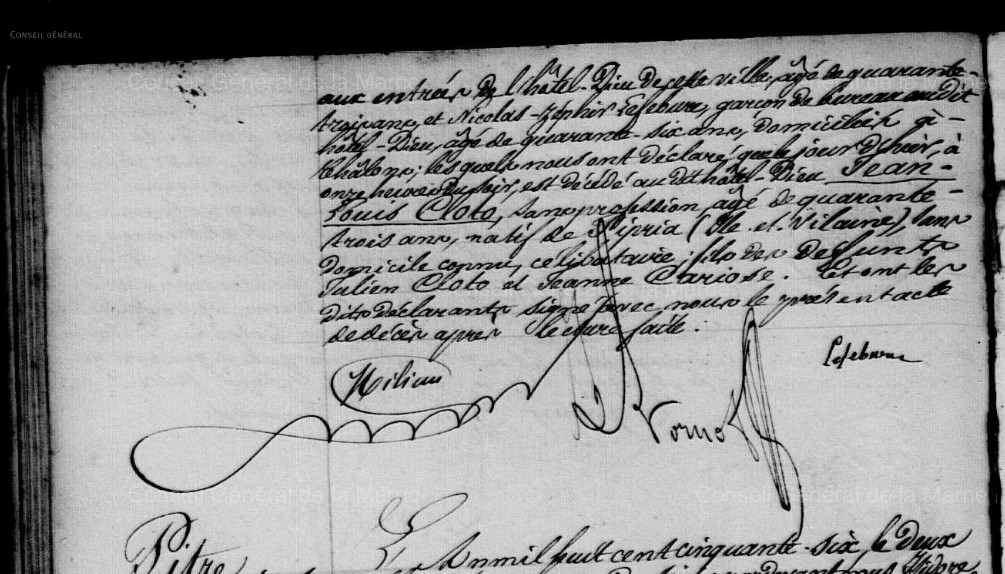 CONSEIL GÉNÉRAL
aux entrées de l'hôtel-Dieu de cette ville, âgé de quarante-
trois ans, et Nicolas-Zéphir Lefebure, garçon de bureau audit
hôtel-Dieu, âgé de quarante-six ans, domiciliés à
Châlons; lesquels nous ont déclaré que le jour d'hier, à
onze heures du soir, est décédé au dit hôtel-Dieu Jean-
Louis Cloto, sans profession, âgé de quarante-
trois ans, natif de (Ille-et-Vilaine), sans
domicile connu, célibataire; fils des défunts
Julien Cloto et Jeanne Cariose. Et ont les
dits déclarants signé avec nous le présent acte
de décès après lecture faite.
Lefebure
Milian
Pitre
L'an mil huit cent cinquante-six, le deux
Conseil Général de la Marne
Conseil Général de la Marne
Conseil Général de la Marne
Conseil Général de la Marne